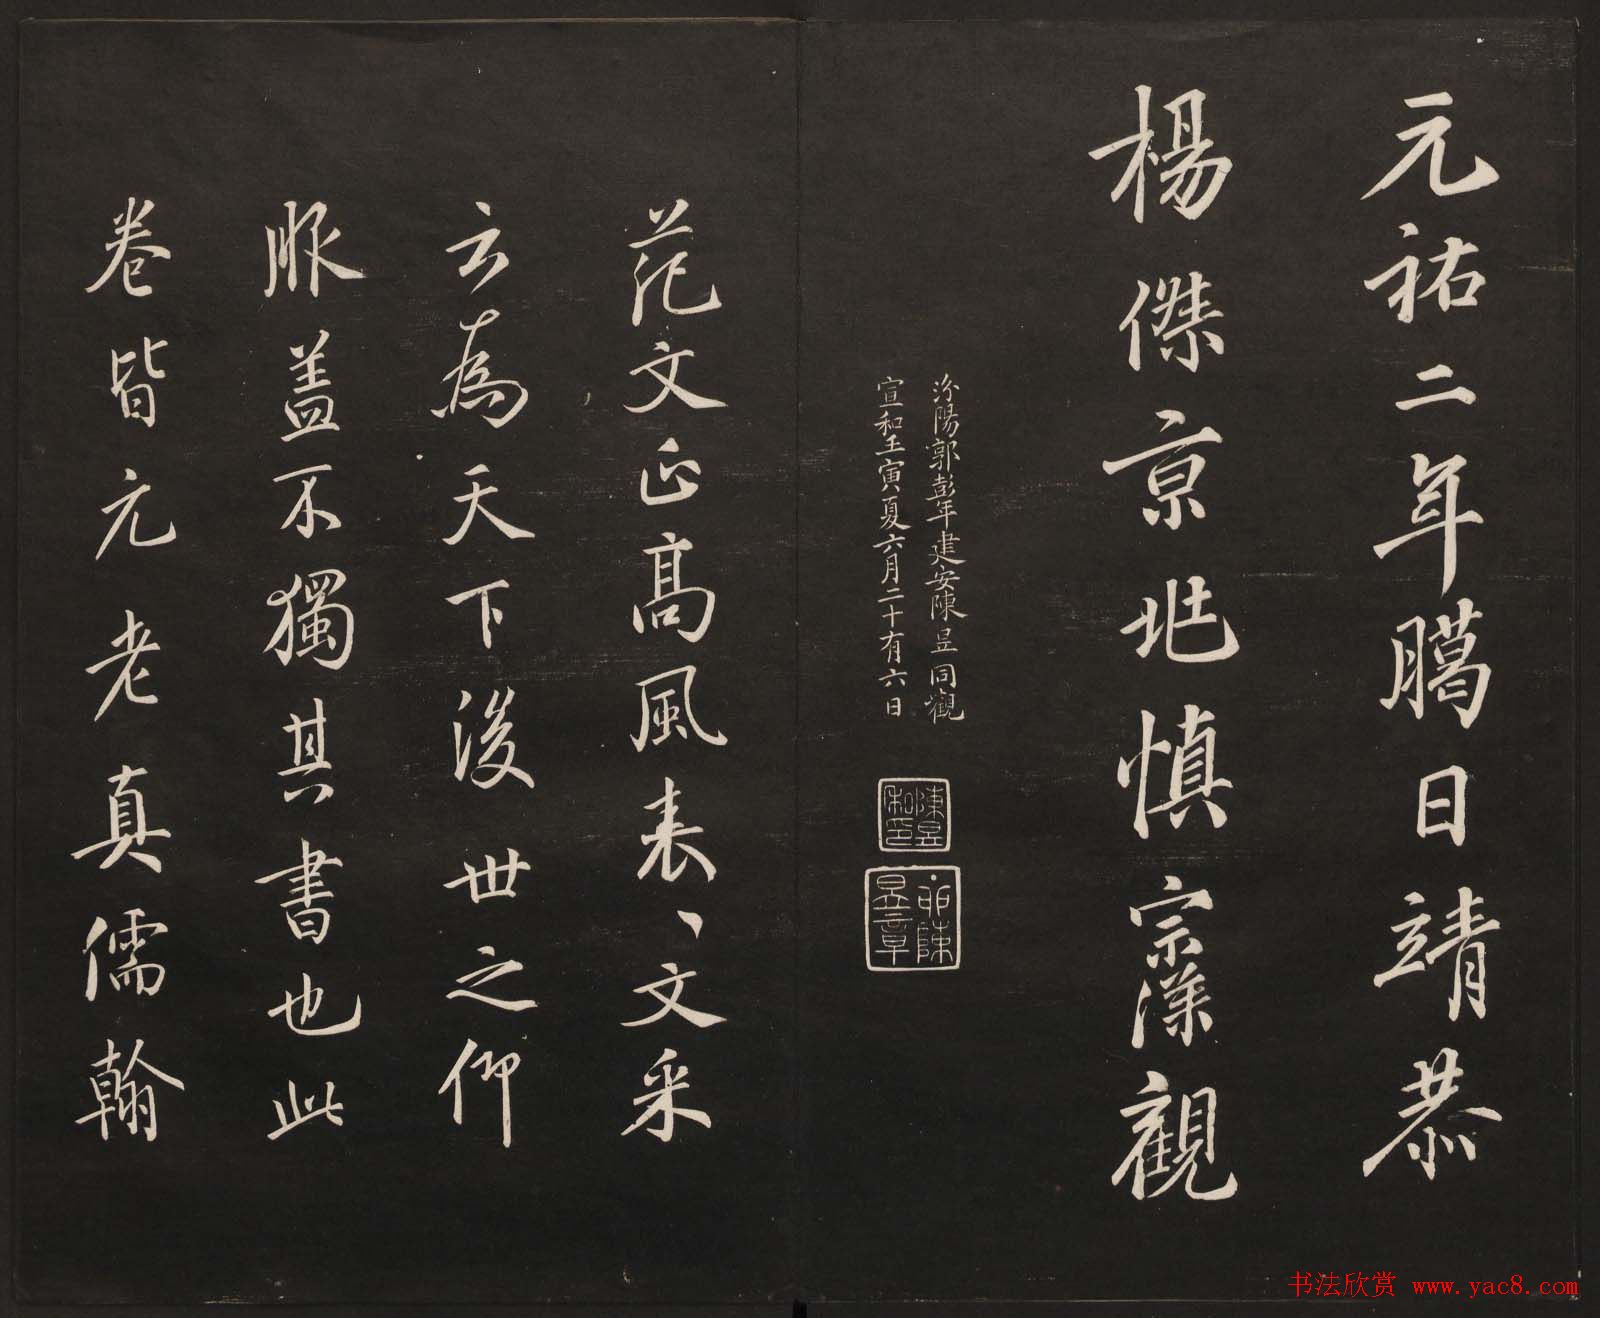 元祐二年臈日靖恭
楊傑京兆慎宗深觀
汾陽郭彭年建安陳昱同觀
宣和壬寅夏六月二十有六日
陳昱私印
范文正高風表、文采
云為天下後世之仰
服盖不獨其書也此
卷皆元老真儒翰
书法欣赏 www.yac8.com